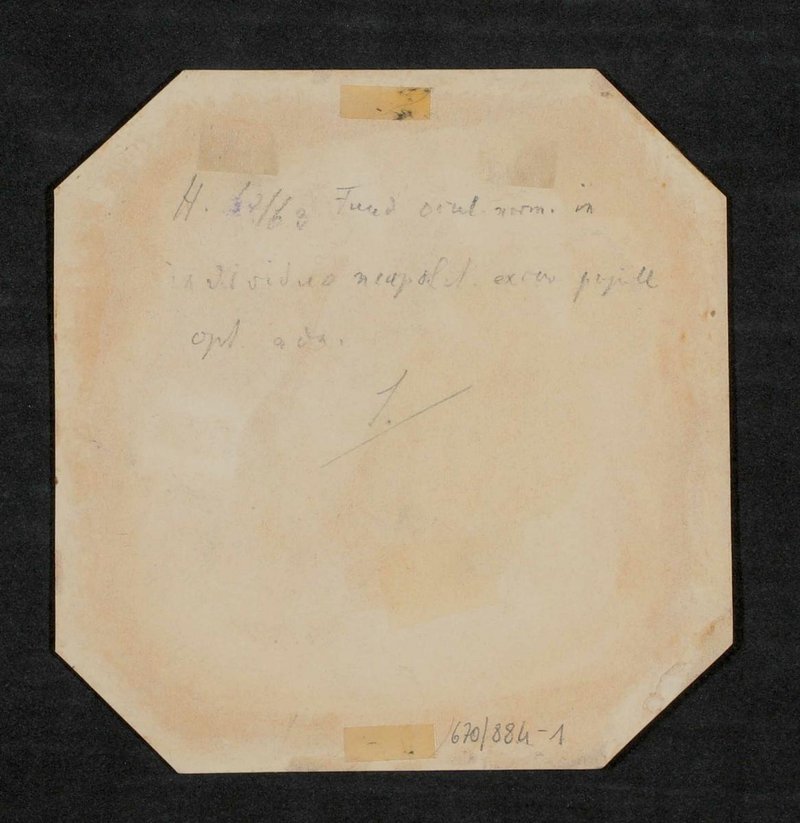 H. 62/63 Fund ocul. norm. in
individuo neapolit. excav papill
opt.
1.
670/884-1